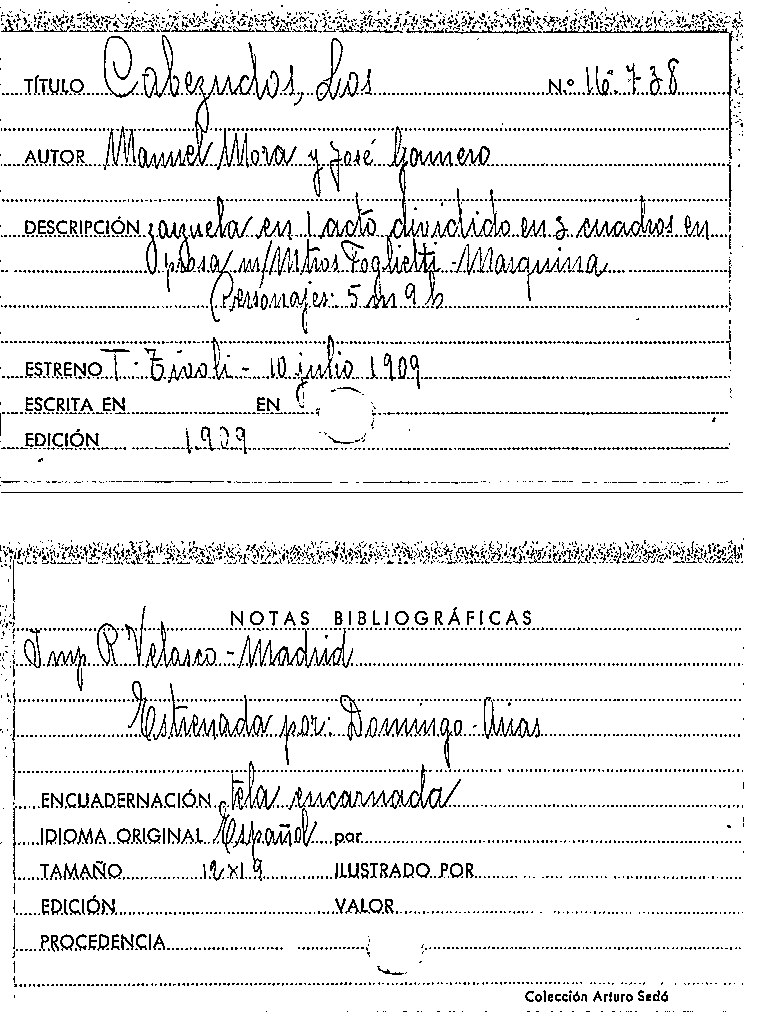 TÍTULO Cabezudos, Los N.º 16.738
AUTOR Manuel Mora y José Gamero
DESCRIPCIÓN zarzuela en 1 acto dividido en 3 cuadros en
prosa m/Mtros Foglietti - Marquina
Personajes: 5 m 9 h
ESTRENO T. Tívoli - 10 julio 1909
ESCRITA EN EN
EDICIÓN 1.909
NOTAS BIBLIOGRÁFICAS
Imp R Velasco - Madrid
Estrenada por: Domingo - Arias
ENCUADERNACIÓN tela encarnada
IDIOMA ORIGINAL Español por
TAMAÑO 12x19 ILUSTRADO POR
EDICIÓN VALOR
PROCEDENCIA
Colección Arturo Sedó